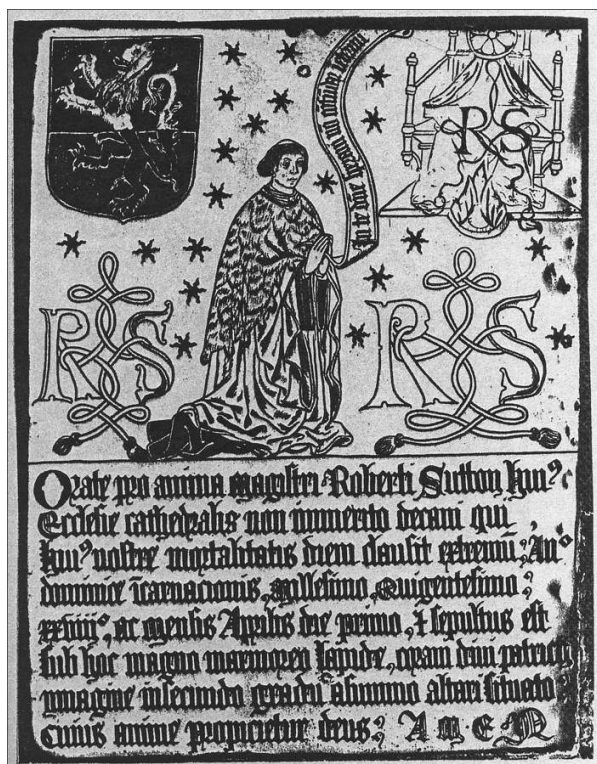 In te dn̄e speraui nō
RS
RS
RS
Orate pro anima magistri Roberti Sutton huiꝰ
Ecclesie cathedralis non immerito decani qui
huiꝰ nostre mortalitatis diem clausit extremū; Anº
dominice īcarnacionis, Millesimo, Quigentesimo;
ac mensis Aprilis die primo, ⁊ sepultus est
sub hoc magno marmoreo lapide, coram diui patricii
ymagine in secundo gradu a summo altari situato
cuius anime propicietur deus; AMEN